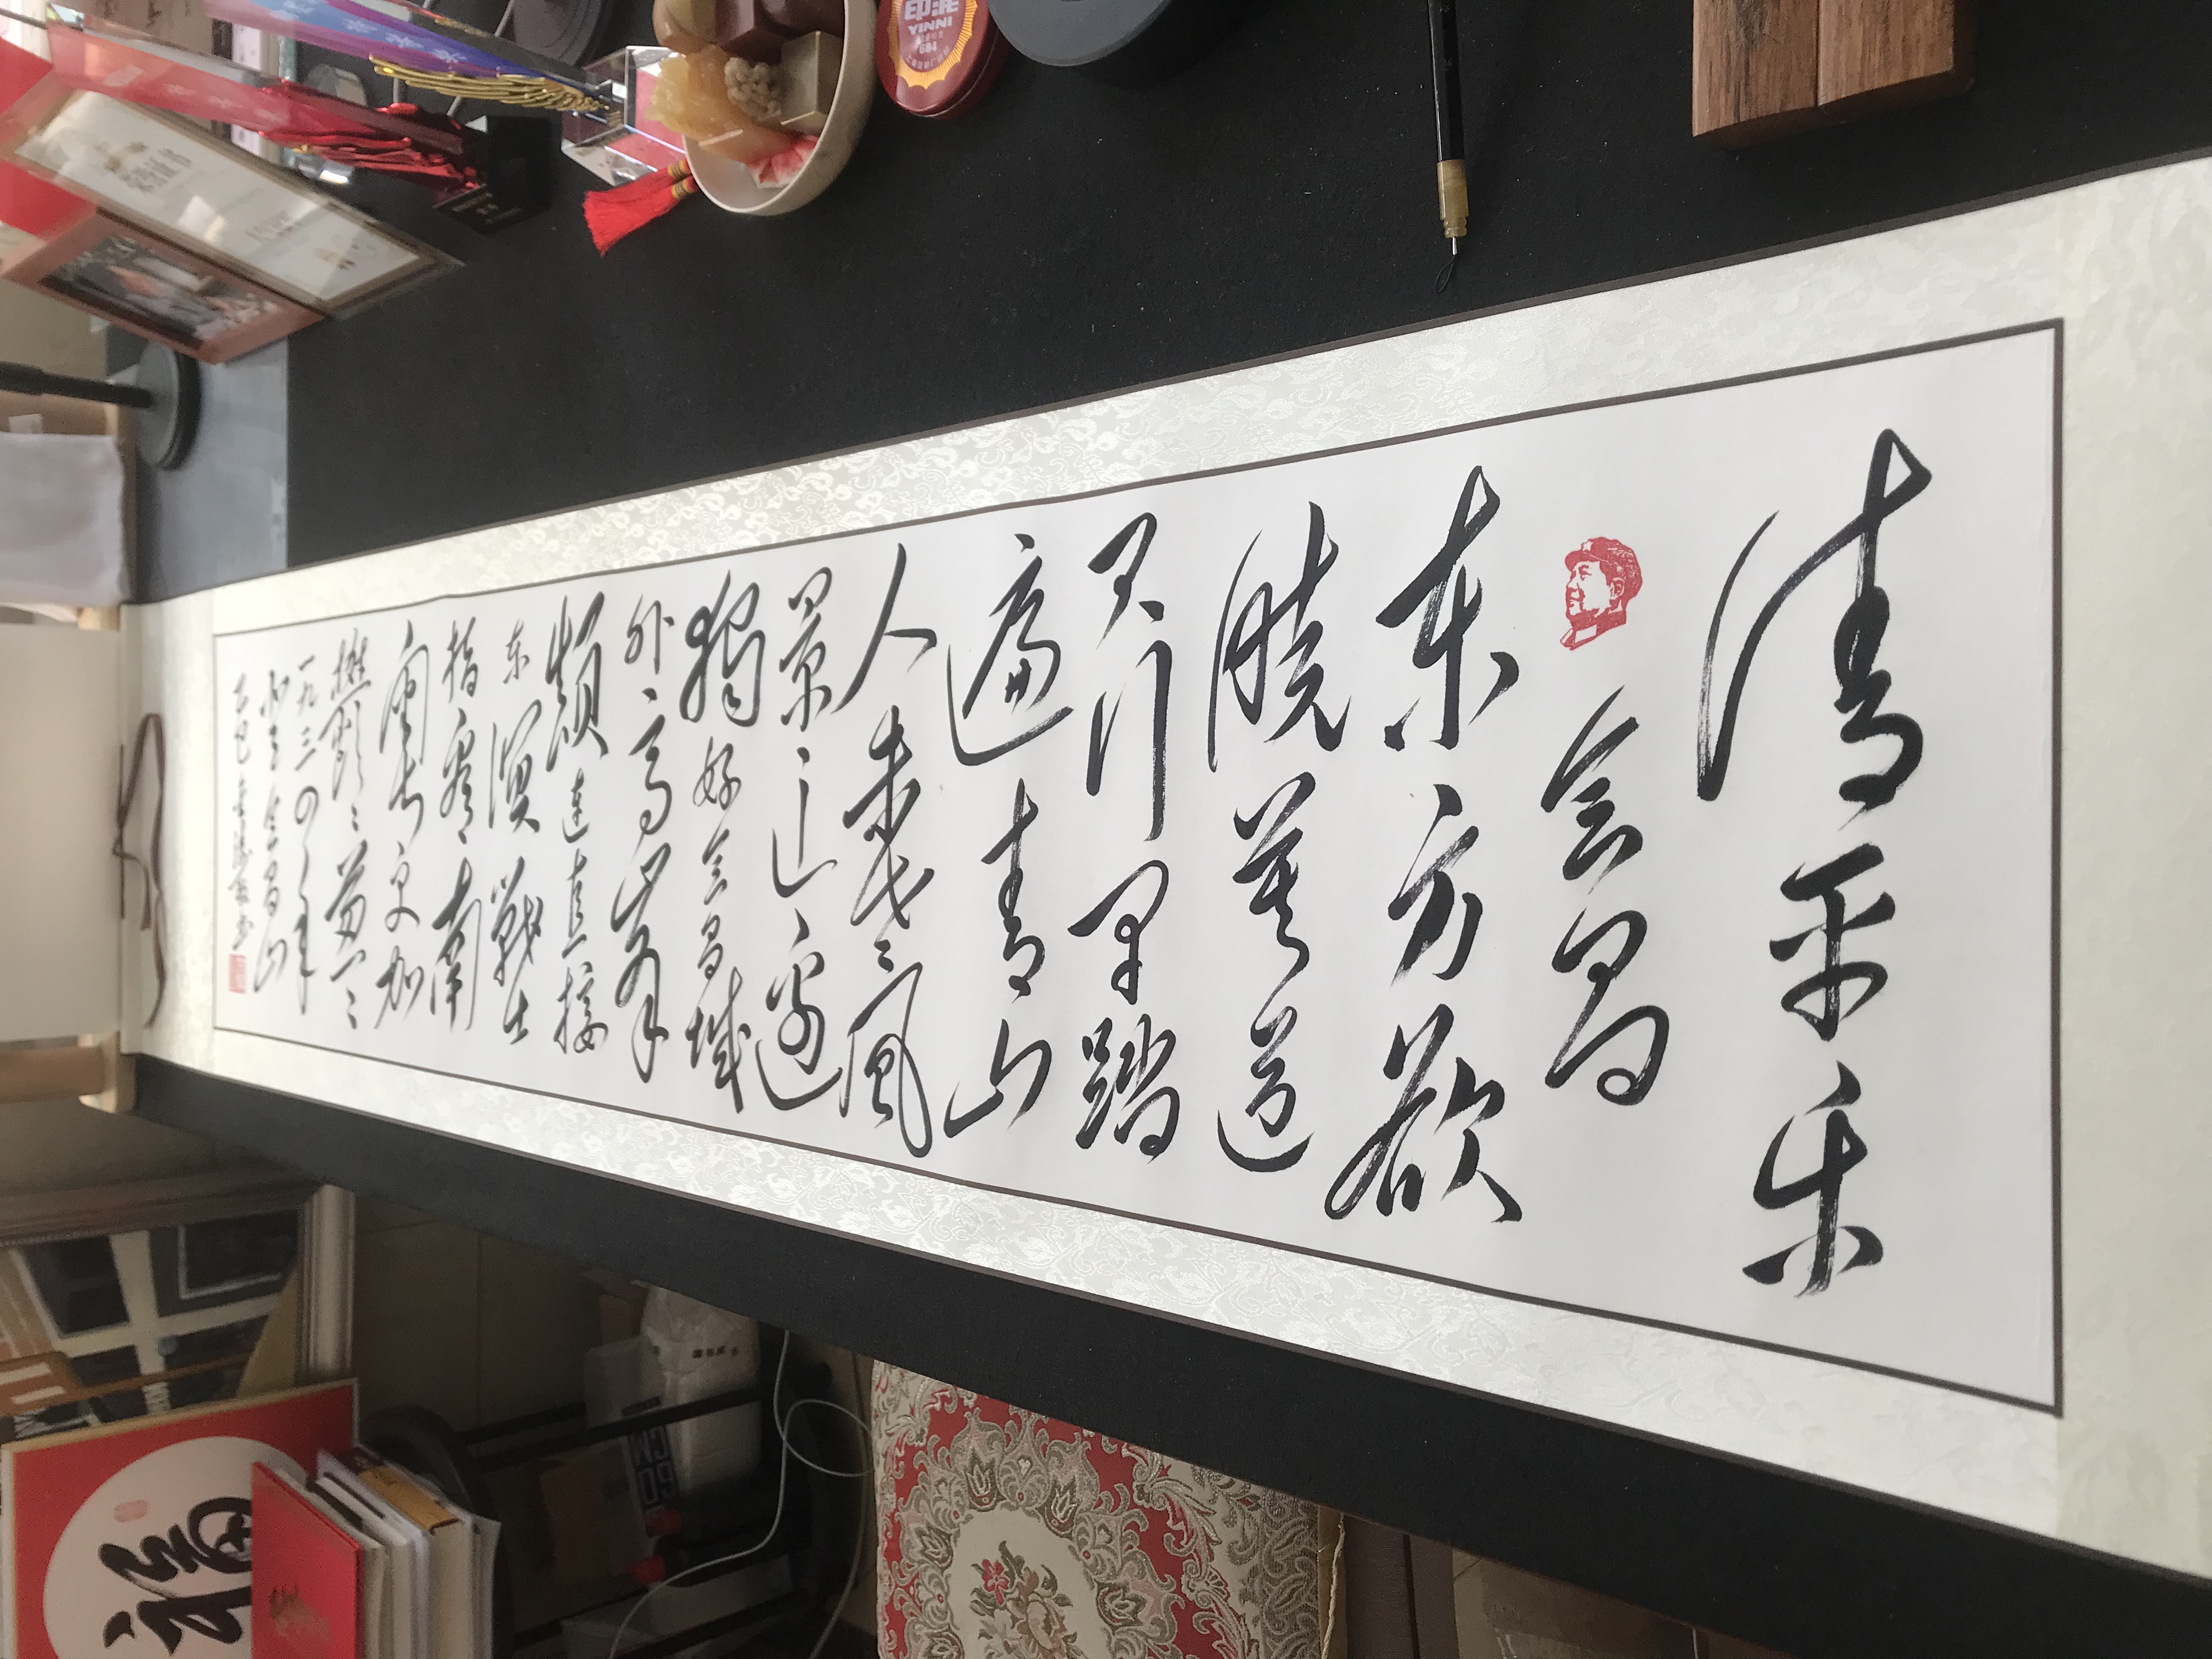 清平乐
会昌
东方欲
晓莫道
君行早踏
遍青山
人未老风
景这边
独好会昌城
外高峰
颠连直接
东溟战士
指看南
粤更加
鬱々葱々
一九三四年
会昌山
印泥
YINNI
684